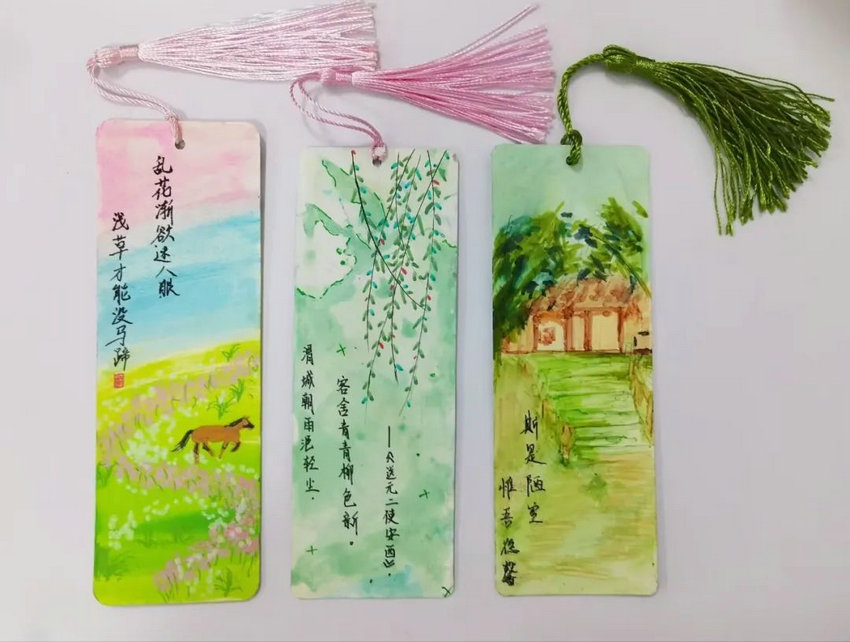 乱花渐欲迷人眼
浅草才能没马蹄
渭城朝雨浥轻尘.
客舍青青柳色新.
——《送元二使安西》.
斯是陋室
惟吾德馨